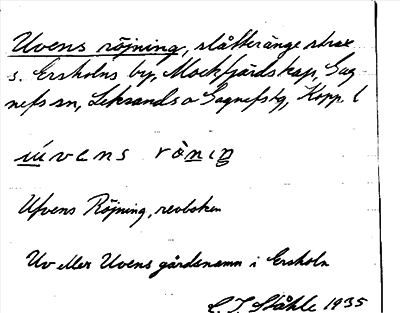 Uvens röjning, slåtteränge strax
s. Ersholns by, Mockfjärds kap., Gag-
nefs sn, Leksands o Gagnefs tg, Kopp. l
ùvens rö̀niŋ
Ufvens Röjning, revboken
Uv eller Uvens gårdsnamn i Ersholn
C. I. Ståhle 1935